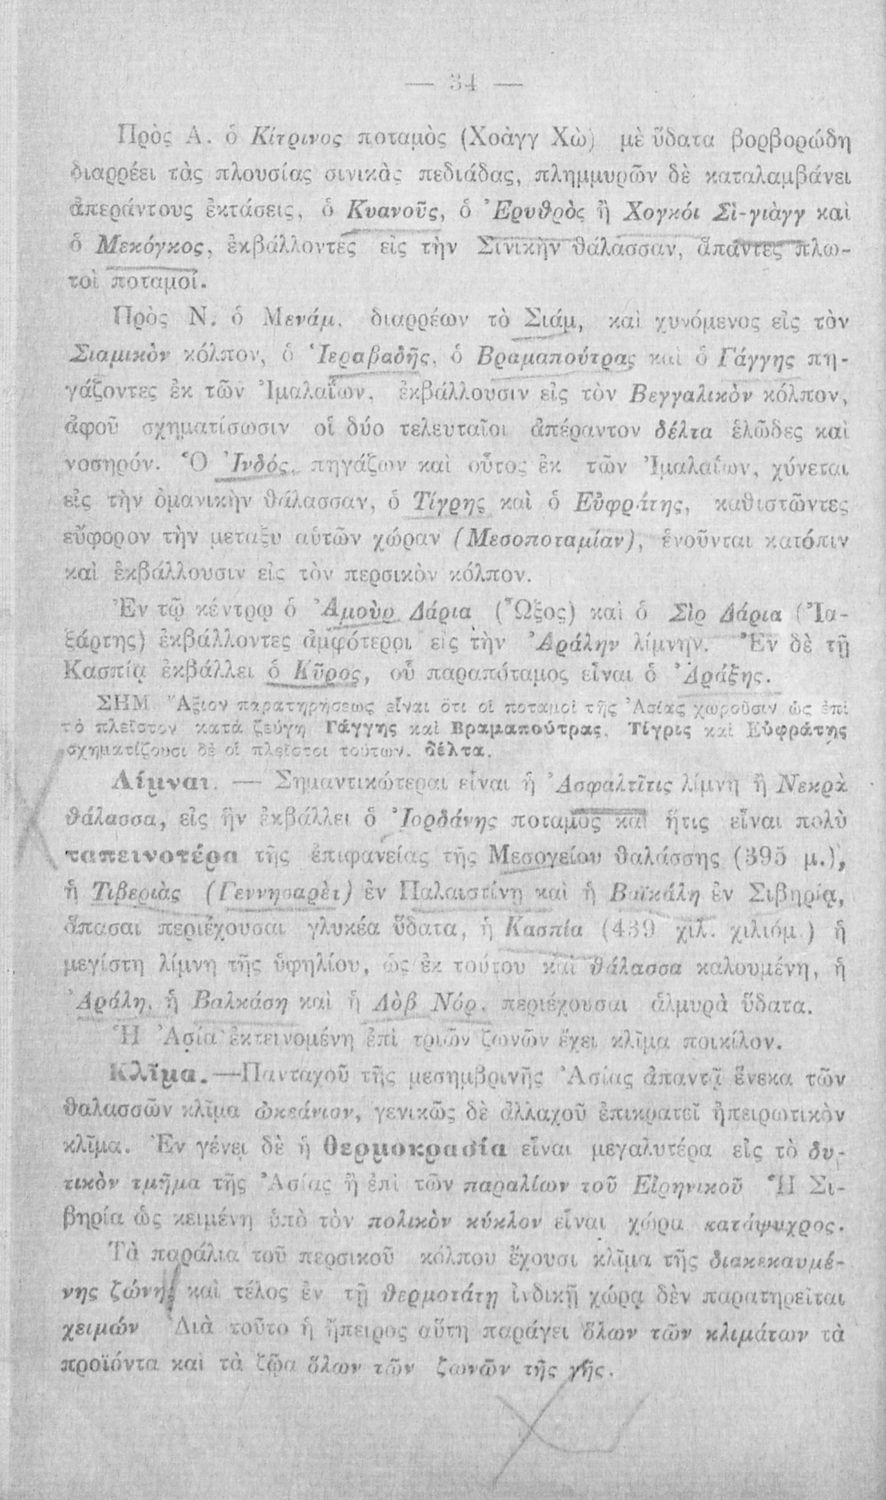 — 34 —
Πρὸς Α. ὁ Κίτρινος ποταμὸς (Χοὰγγ Χὼ) μὲ ὕδατα βορβορώδη
διαρρέει τὰς πλουσίας σινικὰς πεδιάδας, πλημμυρῶν δὲ καταλαμβάνει
ἀπεράντους ἐκτάσεις, ὁ Κυανοῦς, ὁ Ἐρυθρὸς ἢ Χογκόι Σὶ-γιὰγγ καὶ
ὁ Μεκόγκος, ἐκβάλλοντες εἰς τὴν Σινικὴν θάλασσαν, ἅπαντες πλω-
τοὶ ποταμοί.
Πρὸς Ν. ὁ Μενάμ, διαρρέων τὸ Σιάμ, καὶ χυνόμενος εἰς τὸν
Σιαμικὸν κόλπον, ὁ Ἰεραβαδῆς, ὁ Βραμαπούτρας καὶ ὁ Γάγγης πη-
γάζοντες ἐκ τῶν Ἰμαλαΐων, ἐκβάλλουσιν εἰς τὸν Βεγγαλικὸν κόλπον,
ἀφοῦ σχηματίσωσιν οἱ δύο τελευταῖοι ἀπέραντον δέλτα ἑλῶδες καὶ
νοσηρόν. Ὁ Ἰνδός, πηγάζων καὶ οὗτος ἐκ τῶν Ἰμαλαΐων, χύνεται
εἰς τὴν ὀμανικὴν θάλασσαν, ὁ Τίγρης καὶ ὁ Εὐφράτης, καθιστῶντες
εὔφορον τὴν μεταξὺ αὐτῶν χώραν (Μεσοποταμίαν), ἑνοῦνται κατόπιν
καὶ ἐκβάλλουσιν εἰς τὸν περσικὸν κόλπον.
Ἐν τῷ κέντρῳ ὁ Ἀμοὺρ Δάρια (Ὦξος) καὶ ὁ Σὶρ Δάρια (Ἰα-
ξάρτης) ἐκβάλλοντες ἀμφότεροι εἰς τὴν Ἀράλην λίμνην. Ἐν δὲ τῇ
Κασπίᾳ ἐκβάλλει ὁ Κῦρος, οὗ παραπόταμος εἶναι ὁ Ἀράξης.
ΣΗΜ. Ἄξιον παρατηρήσεως εἶναι ὅτι οἱ ποταμοὶ τῆς Ἀσίας χωροῦσιν ὡς ἐπὶ
τὸ πλεῖστον κατὰ ζεύγη Γάγγης καὶ Βραμαπούτρας, Τίγρις καὶ Εὐφράτης
σχηματίζουσι δὲ οἱ πλεῖστοι τούτων. δέλτα.
Λίμναι. — Σημαντικώτεραι εἶναι ἡ Ἀσφαλτῖτις λίμνη ἢ Νεκρὰ
θάλασσα, εἰς ἣν ἐκβάλλει ὁ Ἰορδάνης ποταμὸς καὶ ἥτις εἶναι πολὺ
ταπεινοτέρα τῆς ἐπιφανείας τῆς Μεσογείου θαλάσσης (395 μ.),
ἡ Τιβεριὰς (Γεννησαρὲτ) ἐν Παλαιστίνῃ καὶ ἡ Βαϊκάλη ἐν Σιβηρίᾳ,
ἅπασαι περιέχουσαι γλυκέα ὕδατα, ἡ Κασπία (439 χιλ. χιλιόμ.) ἡ
μεγίστη λίμνη τῆς ὑφηλίου, ὡς ἐκ τούτου καὶ θάλασσα καλουμένη, ἡ
Ἀράλη, ἡ Βαλκάση καὶ ἡ Λὸβ Νόρ, περιέχουσαι ἁλμυρὰ ὕδατα.
Ἡ Ἀσία ἐκτεινομένη ἐπὶ τριῶν ζωνῶν ἔχει κλῖμα ποικίλον.
Κλῖμα.—Πανταχοῦ τῆς μεσημβρινῆς Ἀσίας ἀπαντᾷ ἕνεκα τῶν
θαλασσῶν κλῖμα ὠκεάνιον, γενικῶς δὲ ἀλλαχοῦ ἐπικρατεῖ ἠπειρωτικὸν
κλῖμα. Ἐν γένει δὲ ἡ θερμοκρασία εἶναι μεγαλυτέρα εἰς τὸ δυ-
τικὸν τμῆμα τῆς Ἀσίας ἢ ἐπὶ τῶν παραλίων τοῦ Εἰρηνικοῦ Ἡ Σι-
βηρία ὡς κειμένη ὑπὸ τὸν πολικὸν κύκλον εἶναι χώρα κατάψυχρος.
Τὰ παράλια τοῦ περσικοῦ κόλπου ἔχουσι κλῖμα τῆς διακεκαυμέ-
νης ζώνης καὶ τέλος ἐν τῇ θερμοτάτῃ ἰνδικῇ χώρᾳ δὲν παρατηρεῖται
χειμών Διὰ τοῦτο ἡ ἤπειρος αὕτη παράγει ὅλων τῶν κλιμάτων τὰ
προϊόντα καὶ τὰ ζῷα ὅλων τῶν ζωνῶν τῆς γῆς.